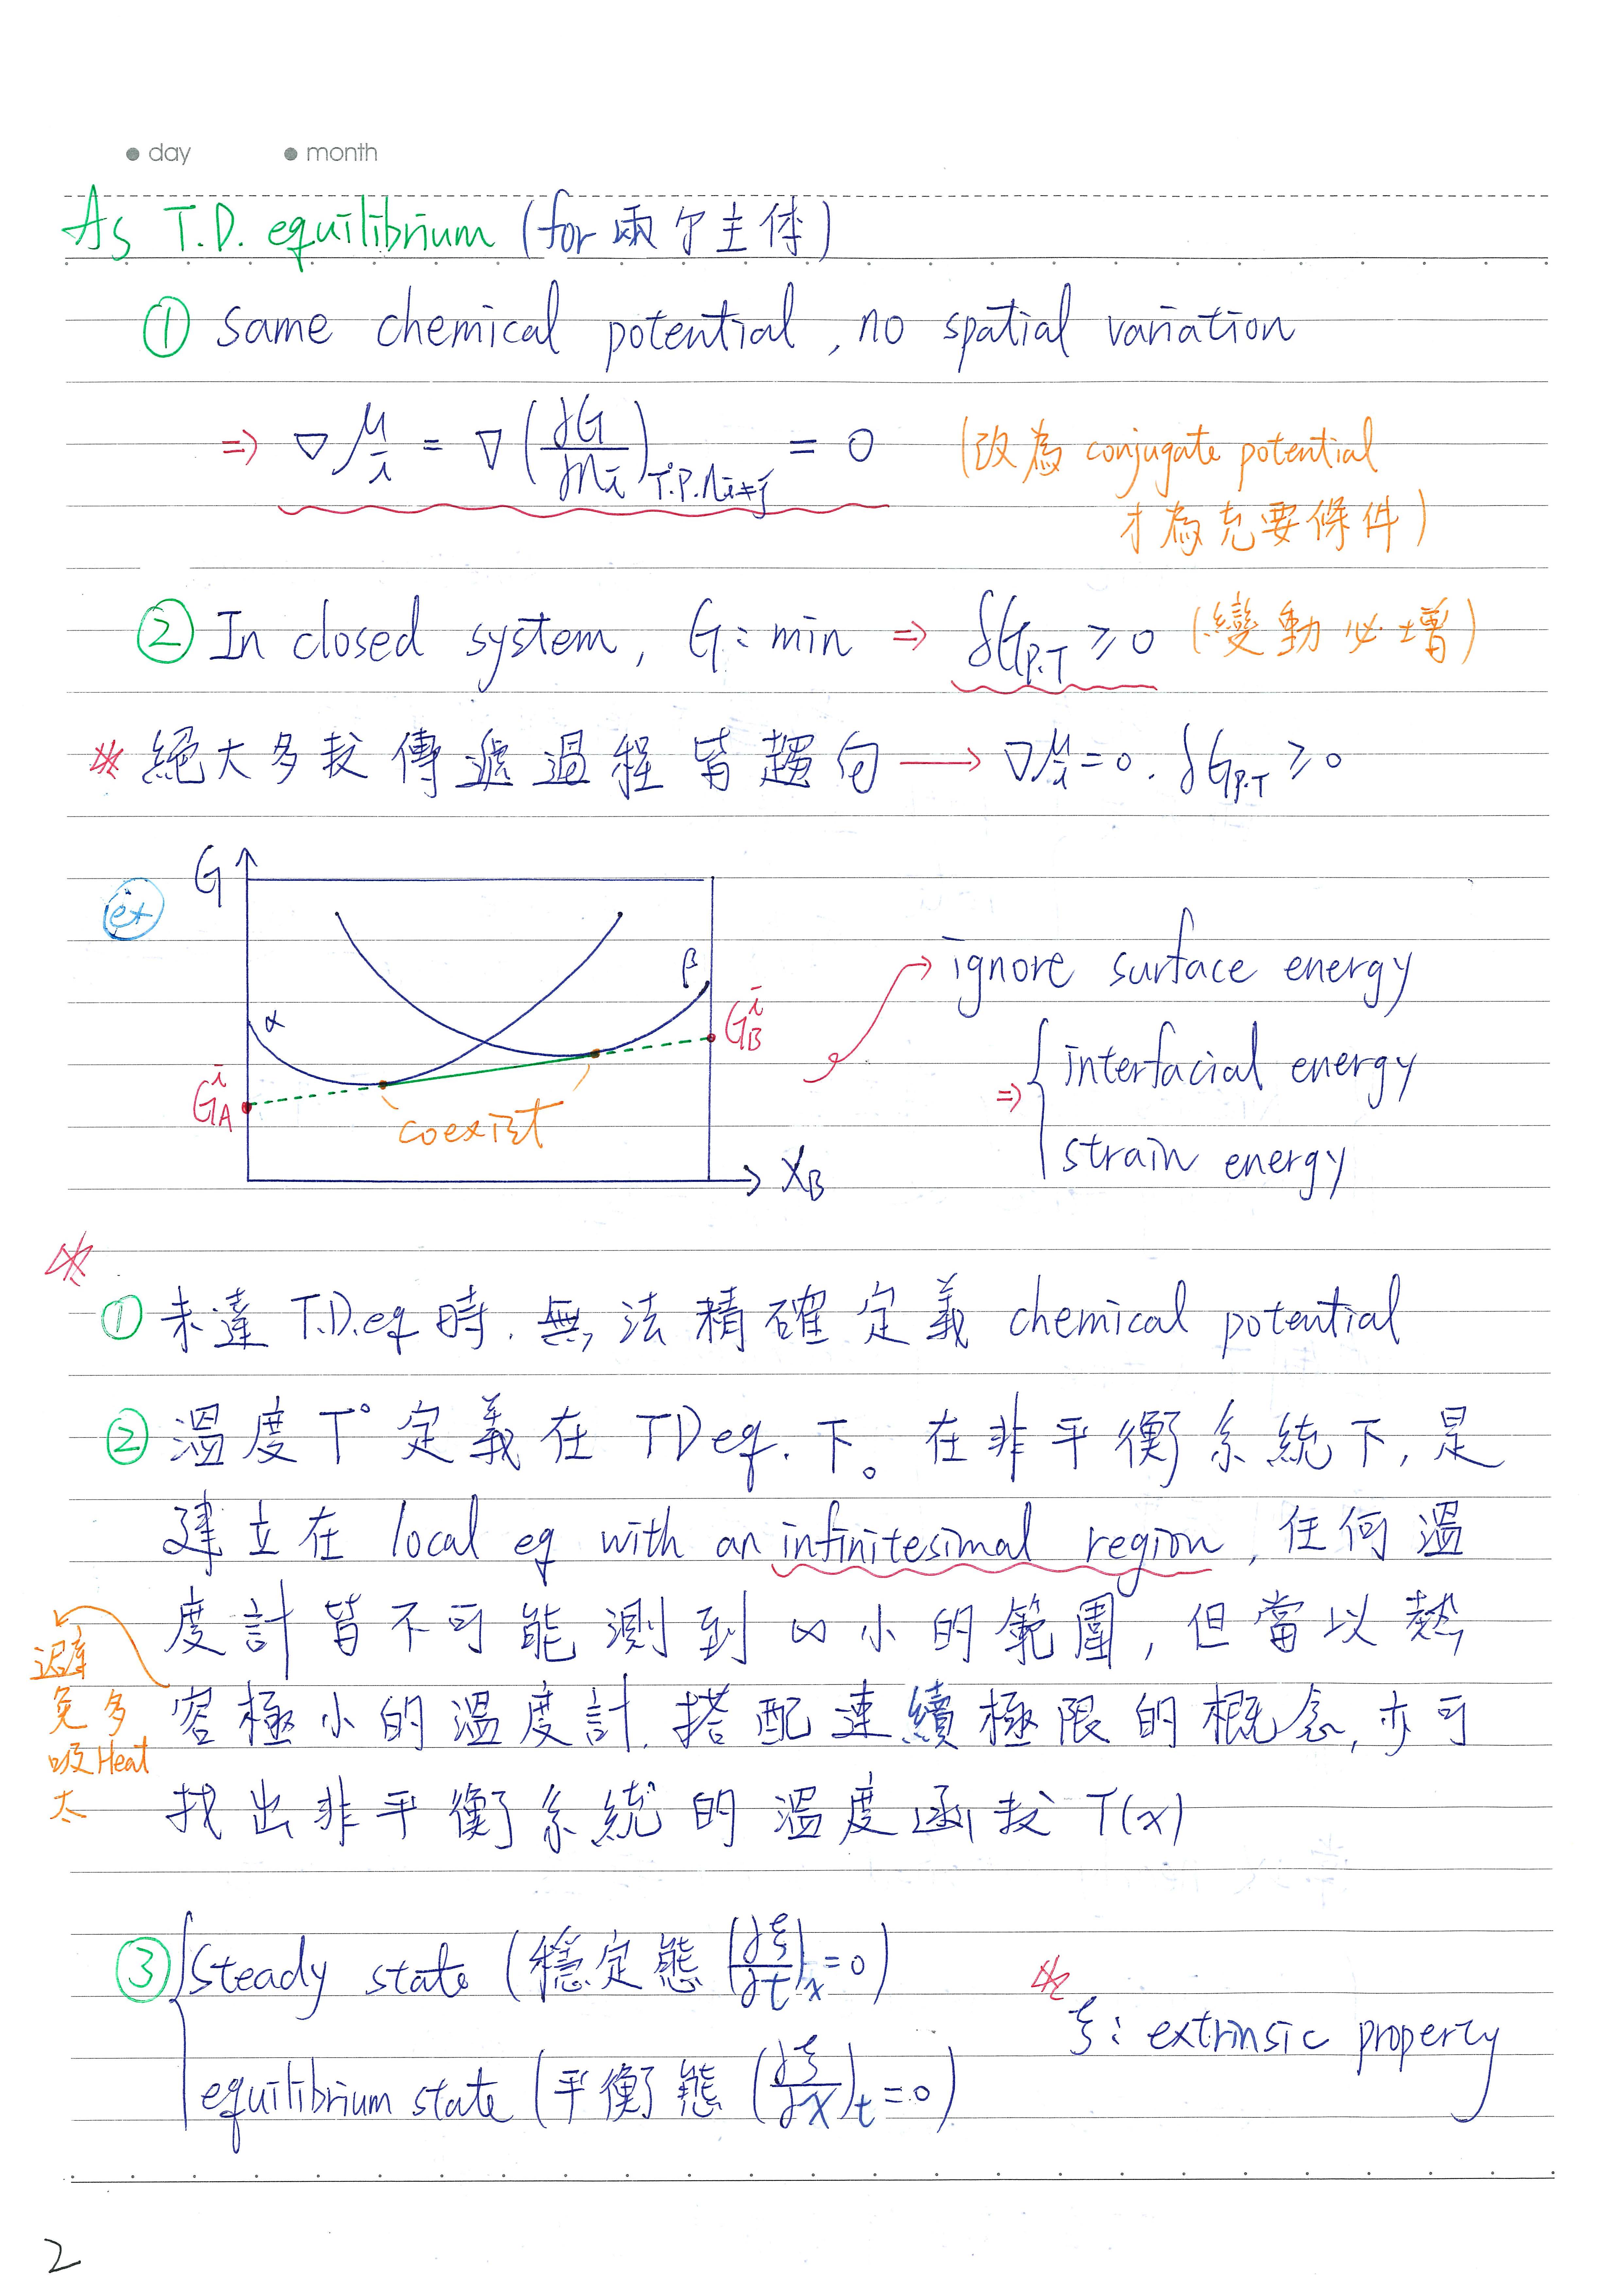 day month
As T.D. equilibrium (for 兩个主体)
① same chemical potential, no spatial variation
⇒ ∇μi = ∇(∂G/∂ni)T.P.ni≠j = 0 (改為 conjugate potential
才為充要條件)
② In closed system, G: min ⇒ δGP.T ≥ 0 (變動必增)
※ 絕大多数傳遞過程皆趨向 → ∇μi = 0. δGP.T ≥ 0
ex
G
α
β
GAⁱ
GBⁱ
coexist
XB
ignore surface energy
⇒ { interfacial energy
strain energy
※
① 未達 T.D.eq 時. 無法精確定義 chemical potential
② 溫度 T° 定義在 TD eq. 下。在非平衡系統下, 是
建立在 local eq with an infinitesimal region, 任何溫
度計皆不可能測到 ∞ 小的範圍, 但當以熱
容極小的溫度計. 搭配連續極限的概念, 亦可
找出非平衡系統的溫度函数 T(x)
避
免多
吸Heat
太
③ { steady state (穩定態 (∂ξ/∂t)x = 0)
equilibrium state (平衡態 (∂ξ/∂x)t = 0)
※ ξ: extrinsic property
2